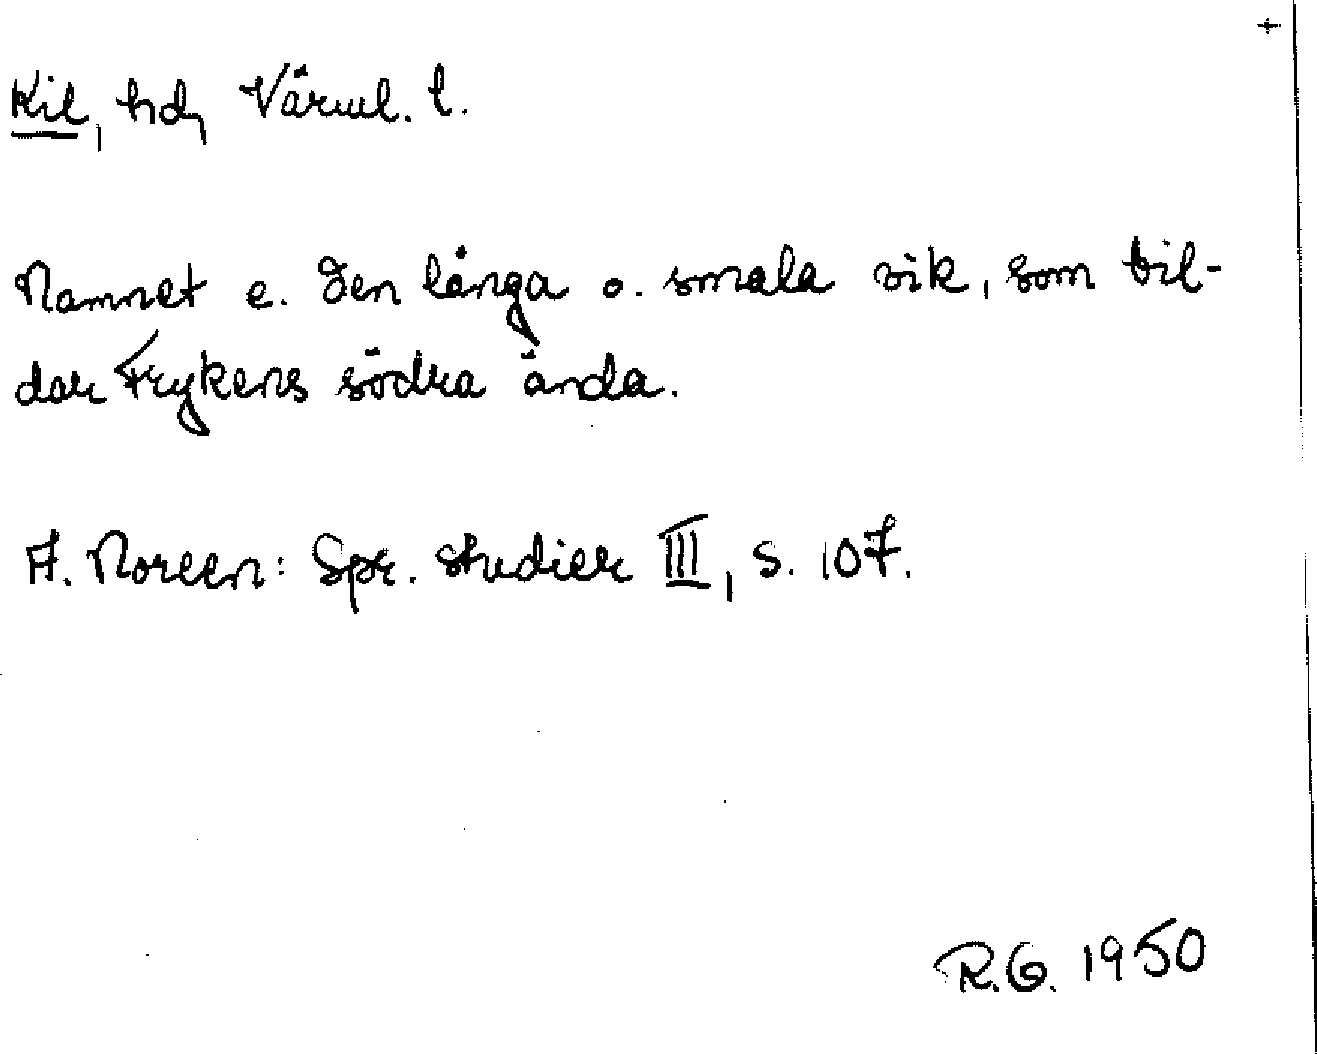 +
Kil, hd, Värml. l.
Namnet e. den långa o. smala vik, som bil-
dar Frykens södra ända.
A. Noreen: Spr. studier III, s. 107.
R.G. 1950